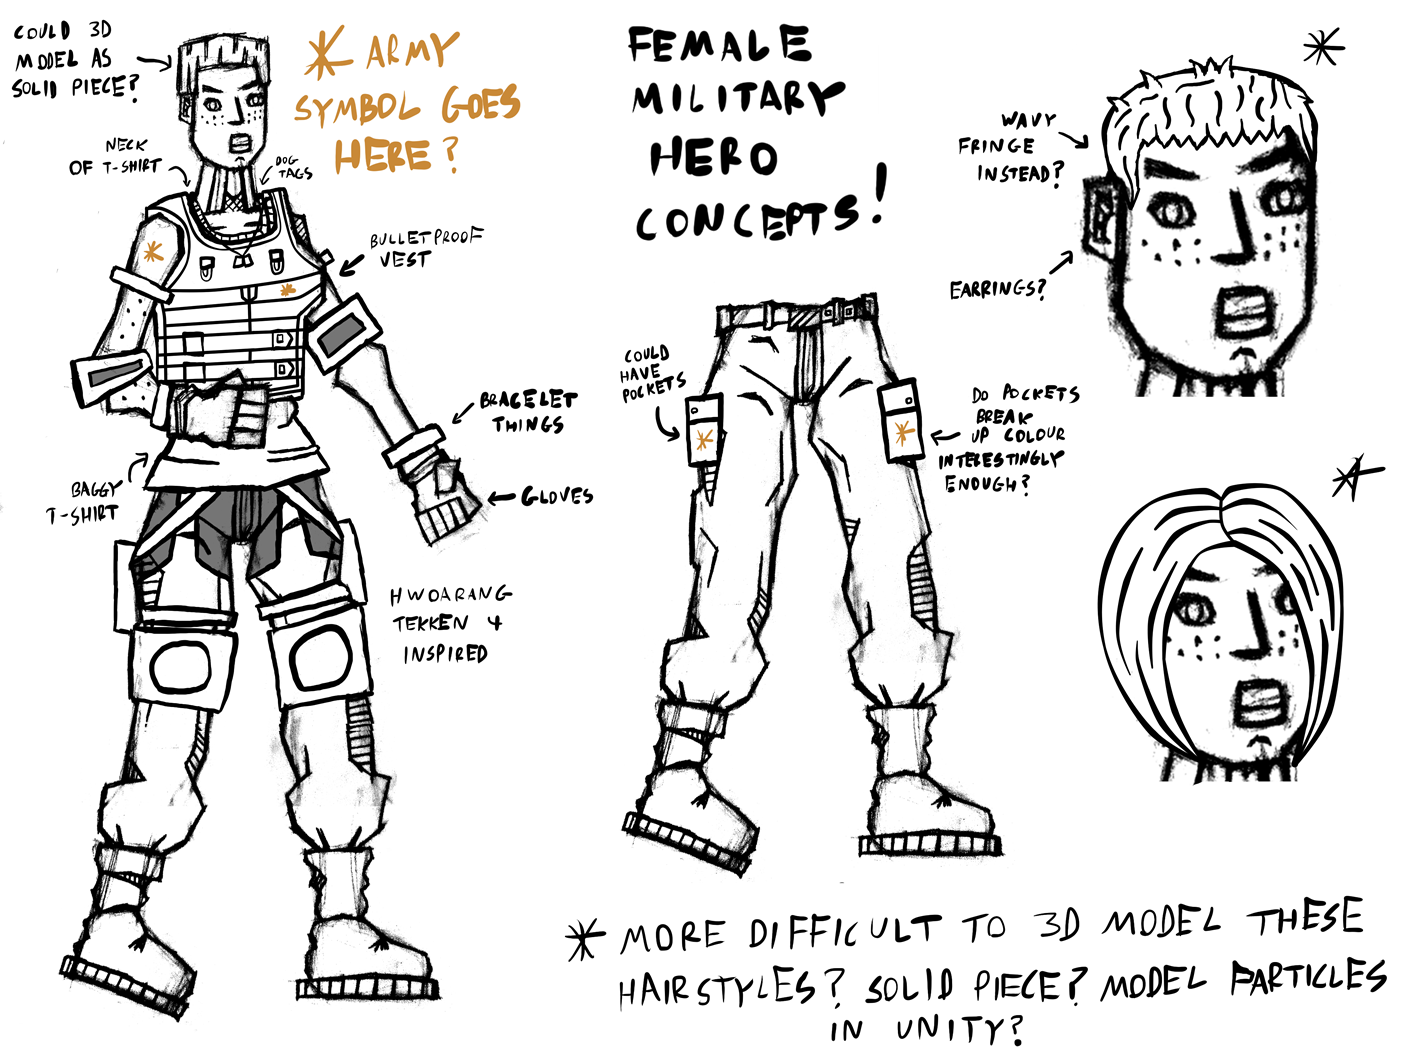 COULD 3D
MODEL AS
SOLID PIECE?
* ARMY
SYMBOL GOES
HERE?
NECK
OF T-SHIRT
DOG
TAGS
BULLETPROOF
VEST
BRACELET
THINGS
GLOVES
BAGGY
T-SHIRT
HWOARANG
TEKKEN 4
INSPIRED
FEMALE
MILITARY
HERO
CONCEPTS!
COULD
HAVE
POCKETS
DO POCKETS
BREAK
UP COLOUR
INTERESTINGLY
ENOUGH?
*
WAVY
FRINGE
INSTEAD?
EARRINGS?
*
* MORE DIFFICULT TO 3D MODEL THESE
HAIRSTYLES? SOLID PIECE? MODEL PARTICLES
IN UNITY?